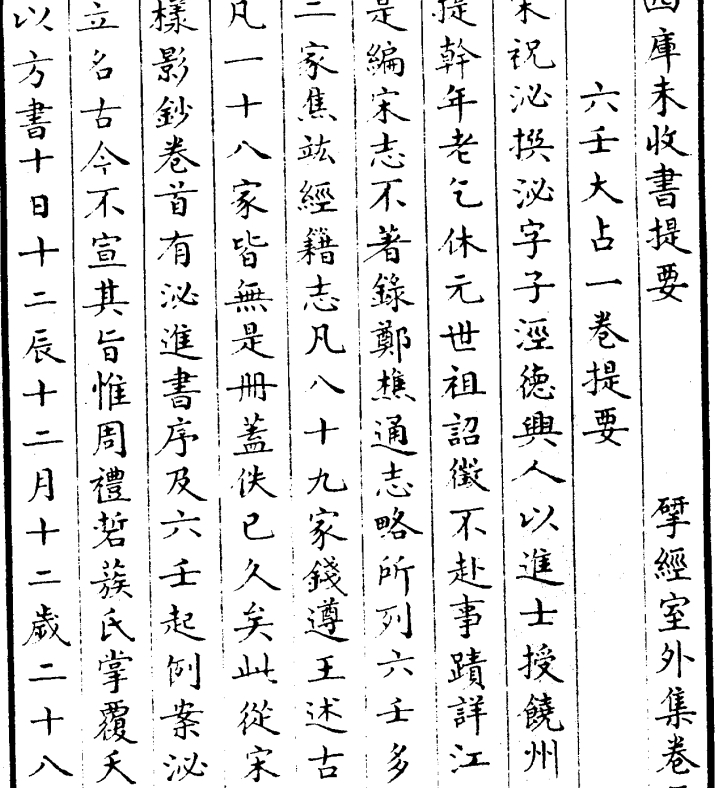 四庫未收書提要　揅經室外集卷
六壬大占一卷提要
宋祝泌撰泌字子涇德興人以進士授饒州
提幹年老乞休元世祖詔徵不赴事蹟詳江
是編宋志不著錄鄭樵通志略所列六壬多
二家焦竑經籍志凡八十九家錢遵王述古
凡一十八家皆無是冊蓋佚已久矣此從宋
樣影鈔卷首有泌進書序及六壬起例案泌
立名古今不宣其旨惟周禮硩蔟氏掌覆夭
以方書十日十二辰十二月十二歲二十八